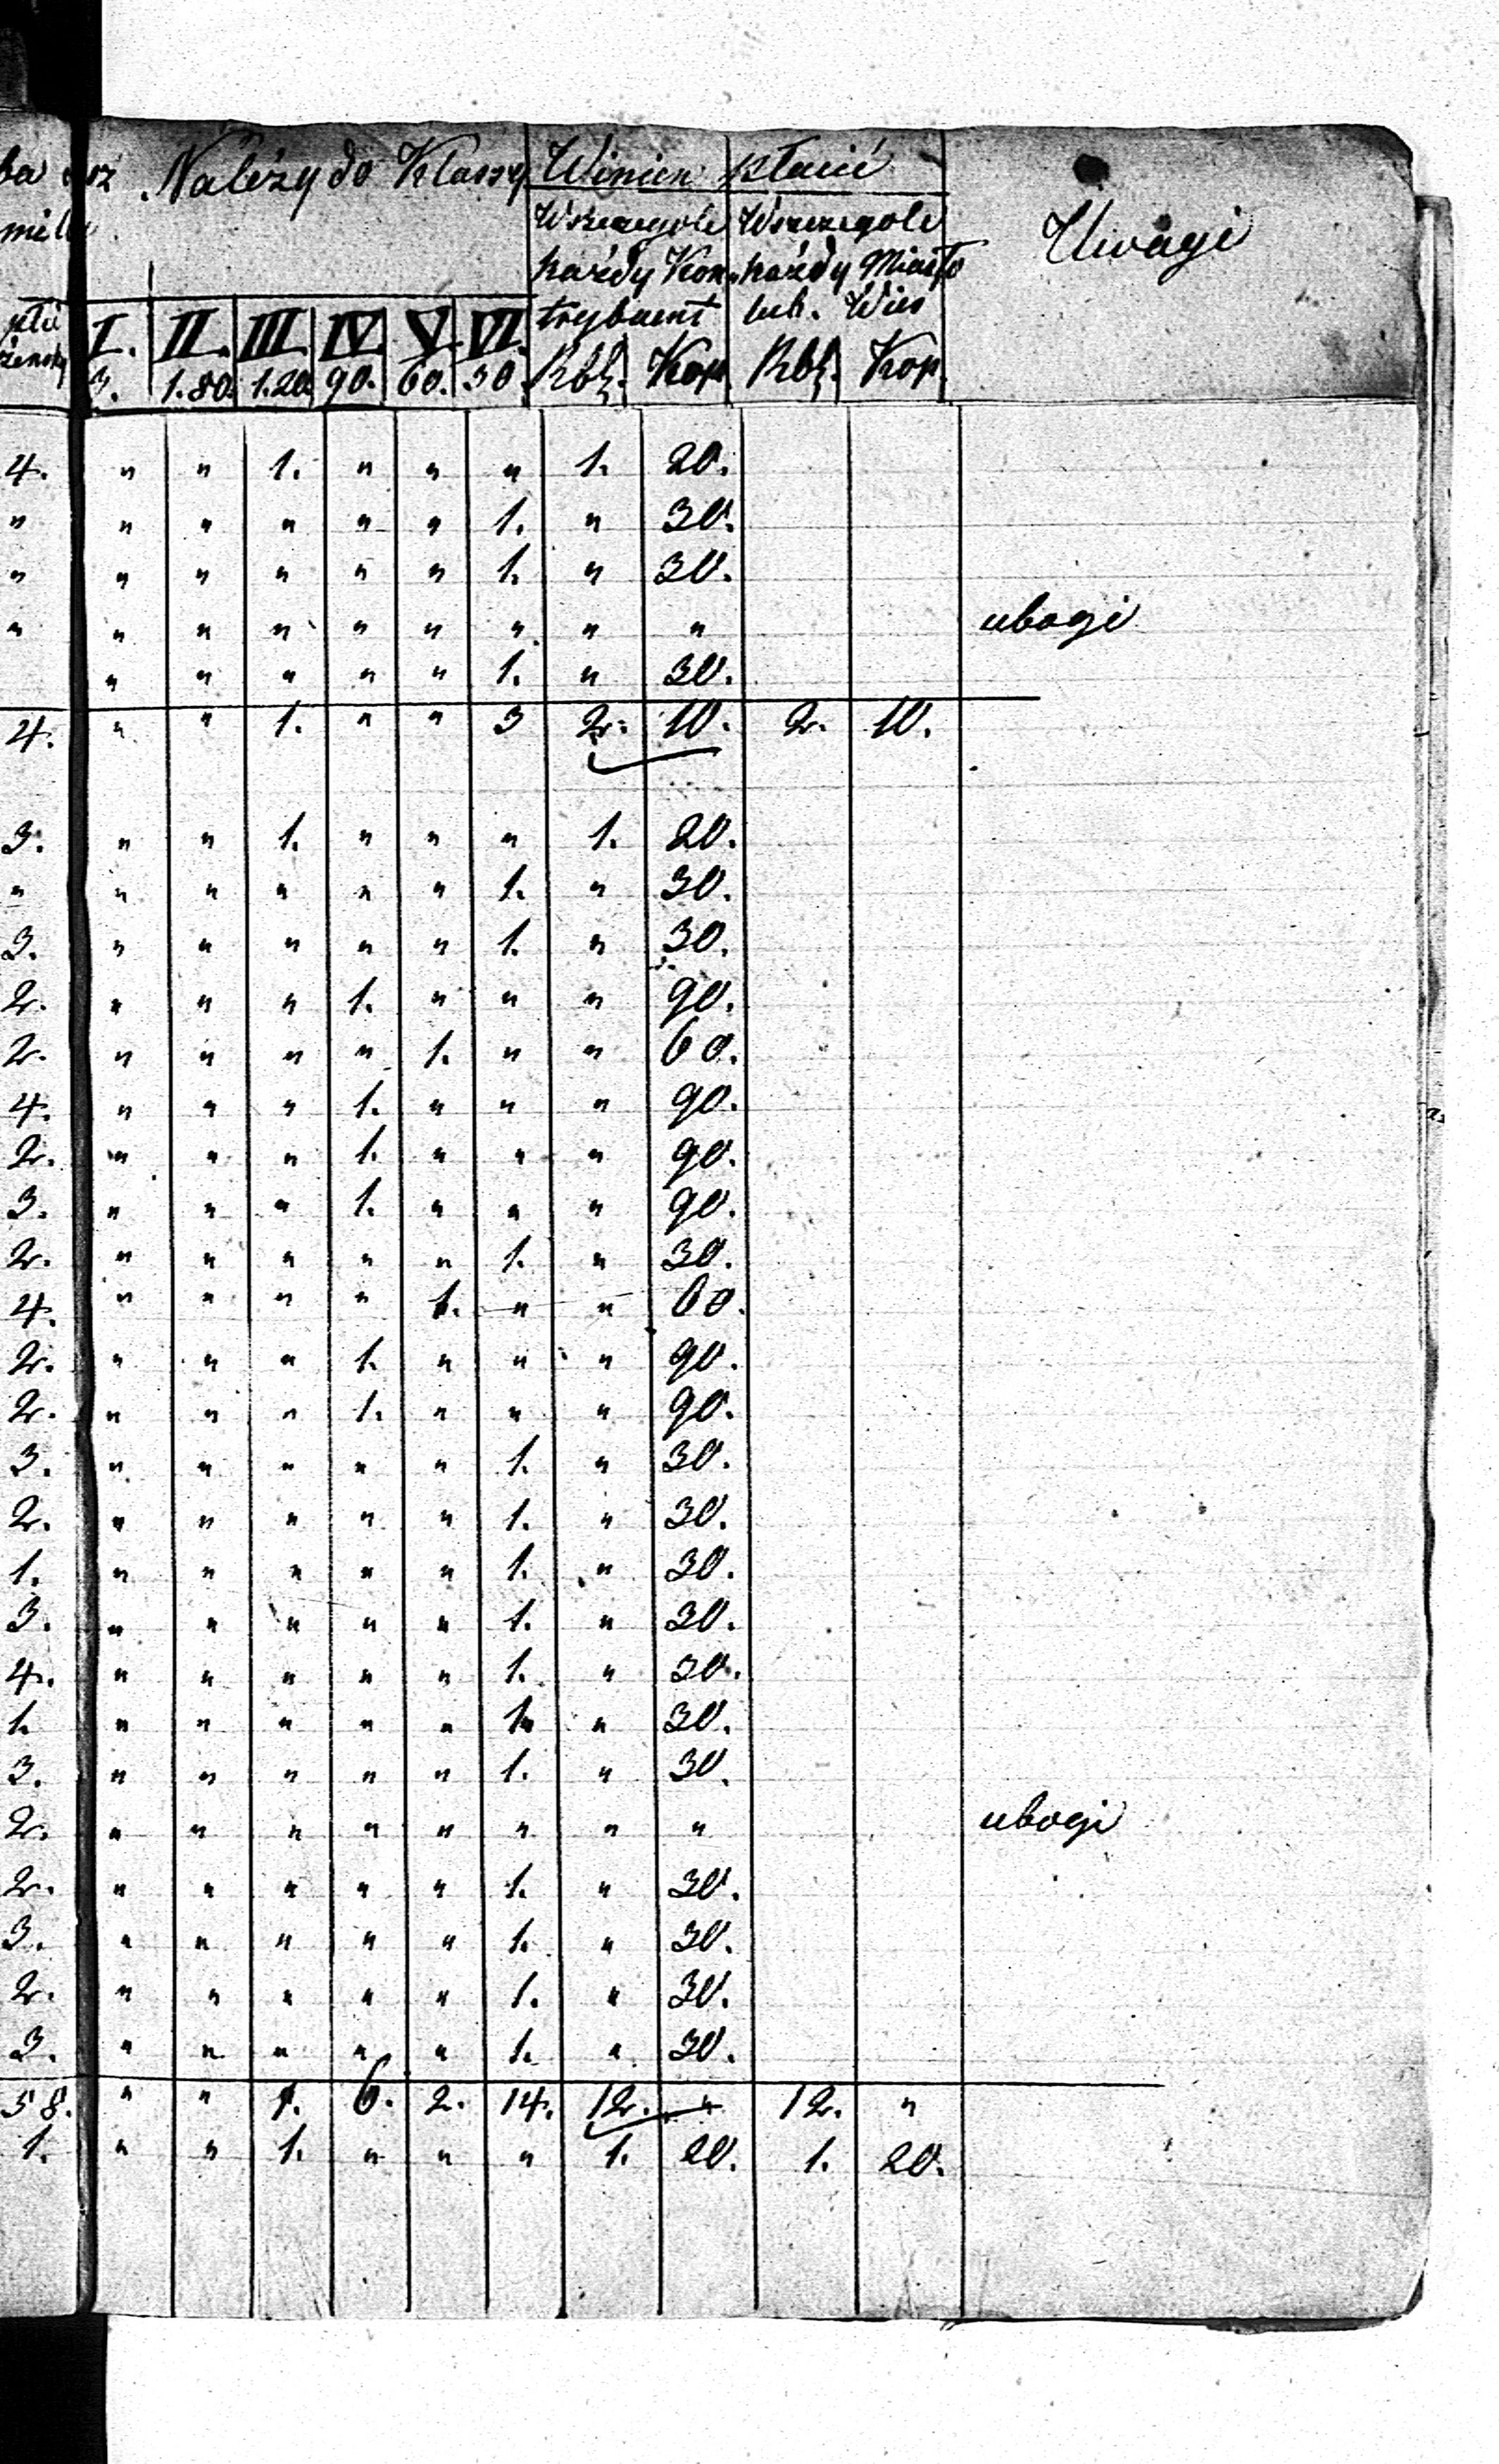 Należy do Klassy Winien płacić Uwagi
Wszczegole każdy Kontrybuent Wszczegole każdy Miasto lub Wieś
I. II. III. IV. V. VI.
3. 1.80. 1.20. 90. 60. 30. Rbl. Kop. Rbl. Kop.
4. " " 1. " " " 1. 20.
" " " " " " 1. " 30.
" " " " " " 1. " 30.
" " " " " " " " " ubogi
" " " " " 1. " 30.
4. " " 1. " " 3 2. 10. 2. 10.
3. " " 1. " " " 1. 20.
" " " " " " 1. " 30.
3. " " " " " 1. " 30.
2. " " " 1. " " " 90.
2. " " " " 1. " " 60.
4. " " " 1. " " " 90.
2. " " " 1. " " " 90.
3. " " " 1. " " " 90.
2. " " " " " 1. " 30.
4. " " " " 1. " " 60.
2. " " " 1. " " " 90.
2. " " " 1. " " " 90.
3. " " " " " 1. " 30.
2. " " " " " 1. " 30.
1. " " " " " 1. " 30.
3. " " " " " 1. " 30.
4. " " " " " 1. " 30.
1. " " " " " 1. " 30.
3. " " " " " 1. " 30.
2. " " " " " " " " ubogi
2. " " " " " 1. " 30.
3. " " " " " 1. " 30.
2. " " " " " 1. " 30.
3. " " " " " 1. " 30.
58. " " 1. 6. 2. 14. 12. " 12. "
1. " " 1. " " " 1. 20. 1. 20.